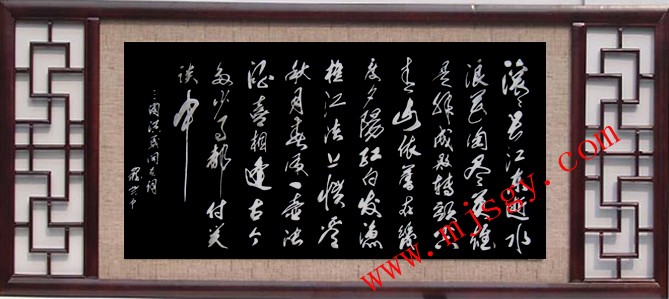 滚滚長江东逝水
浪花淘尽英雄
是非成敗转頭空
青山依舊在幾
度夕陽红白发渔
樵江渚上惯看
秋月春风一壶浊
酒喜相逢古今
多少事都付笑
谈中
www.mjsgy.com